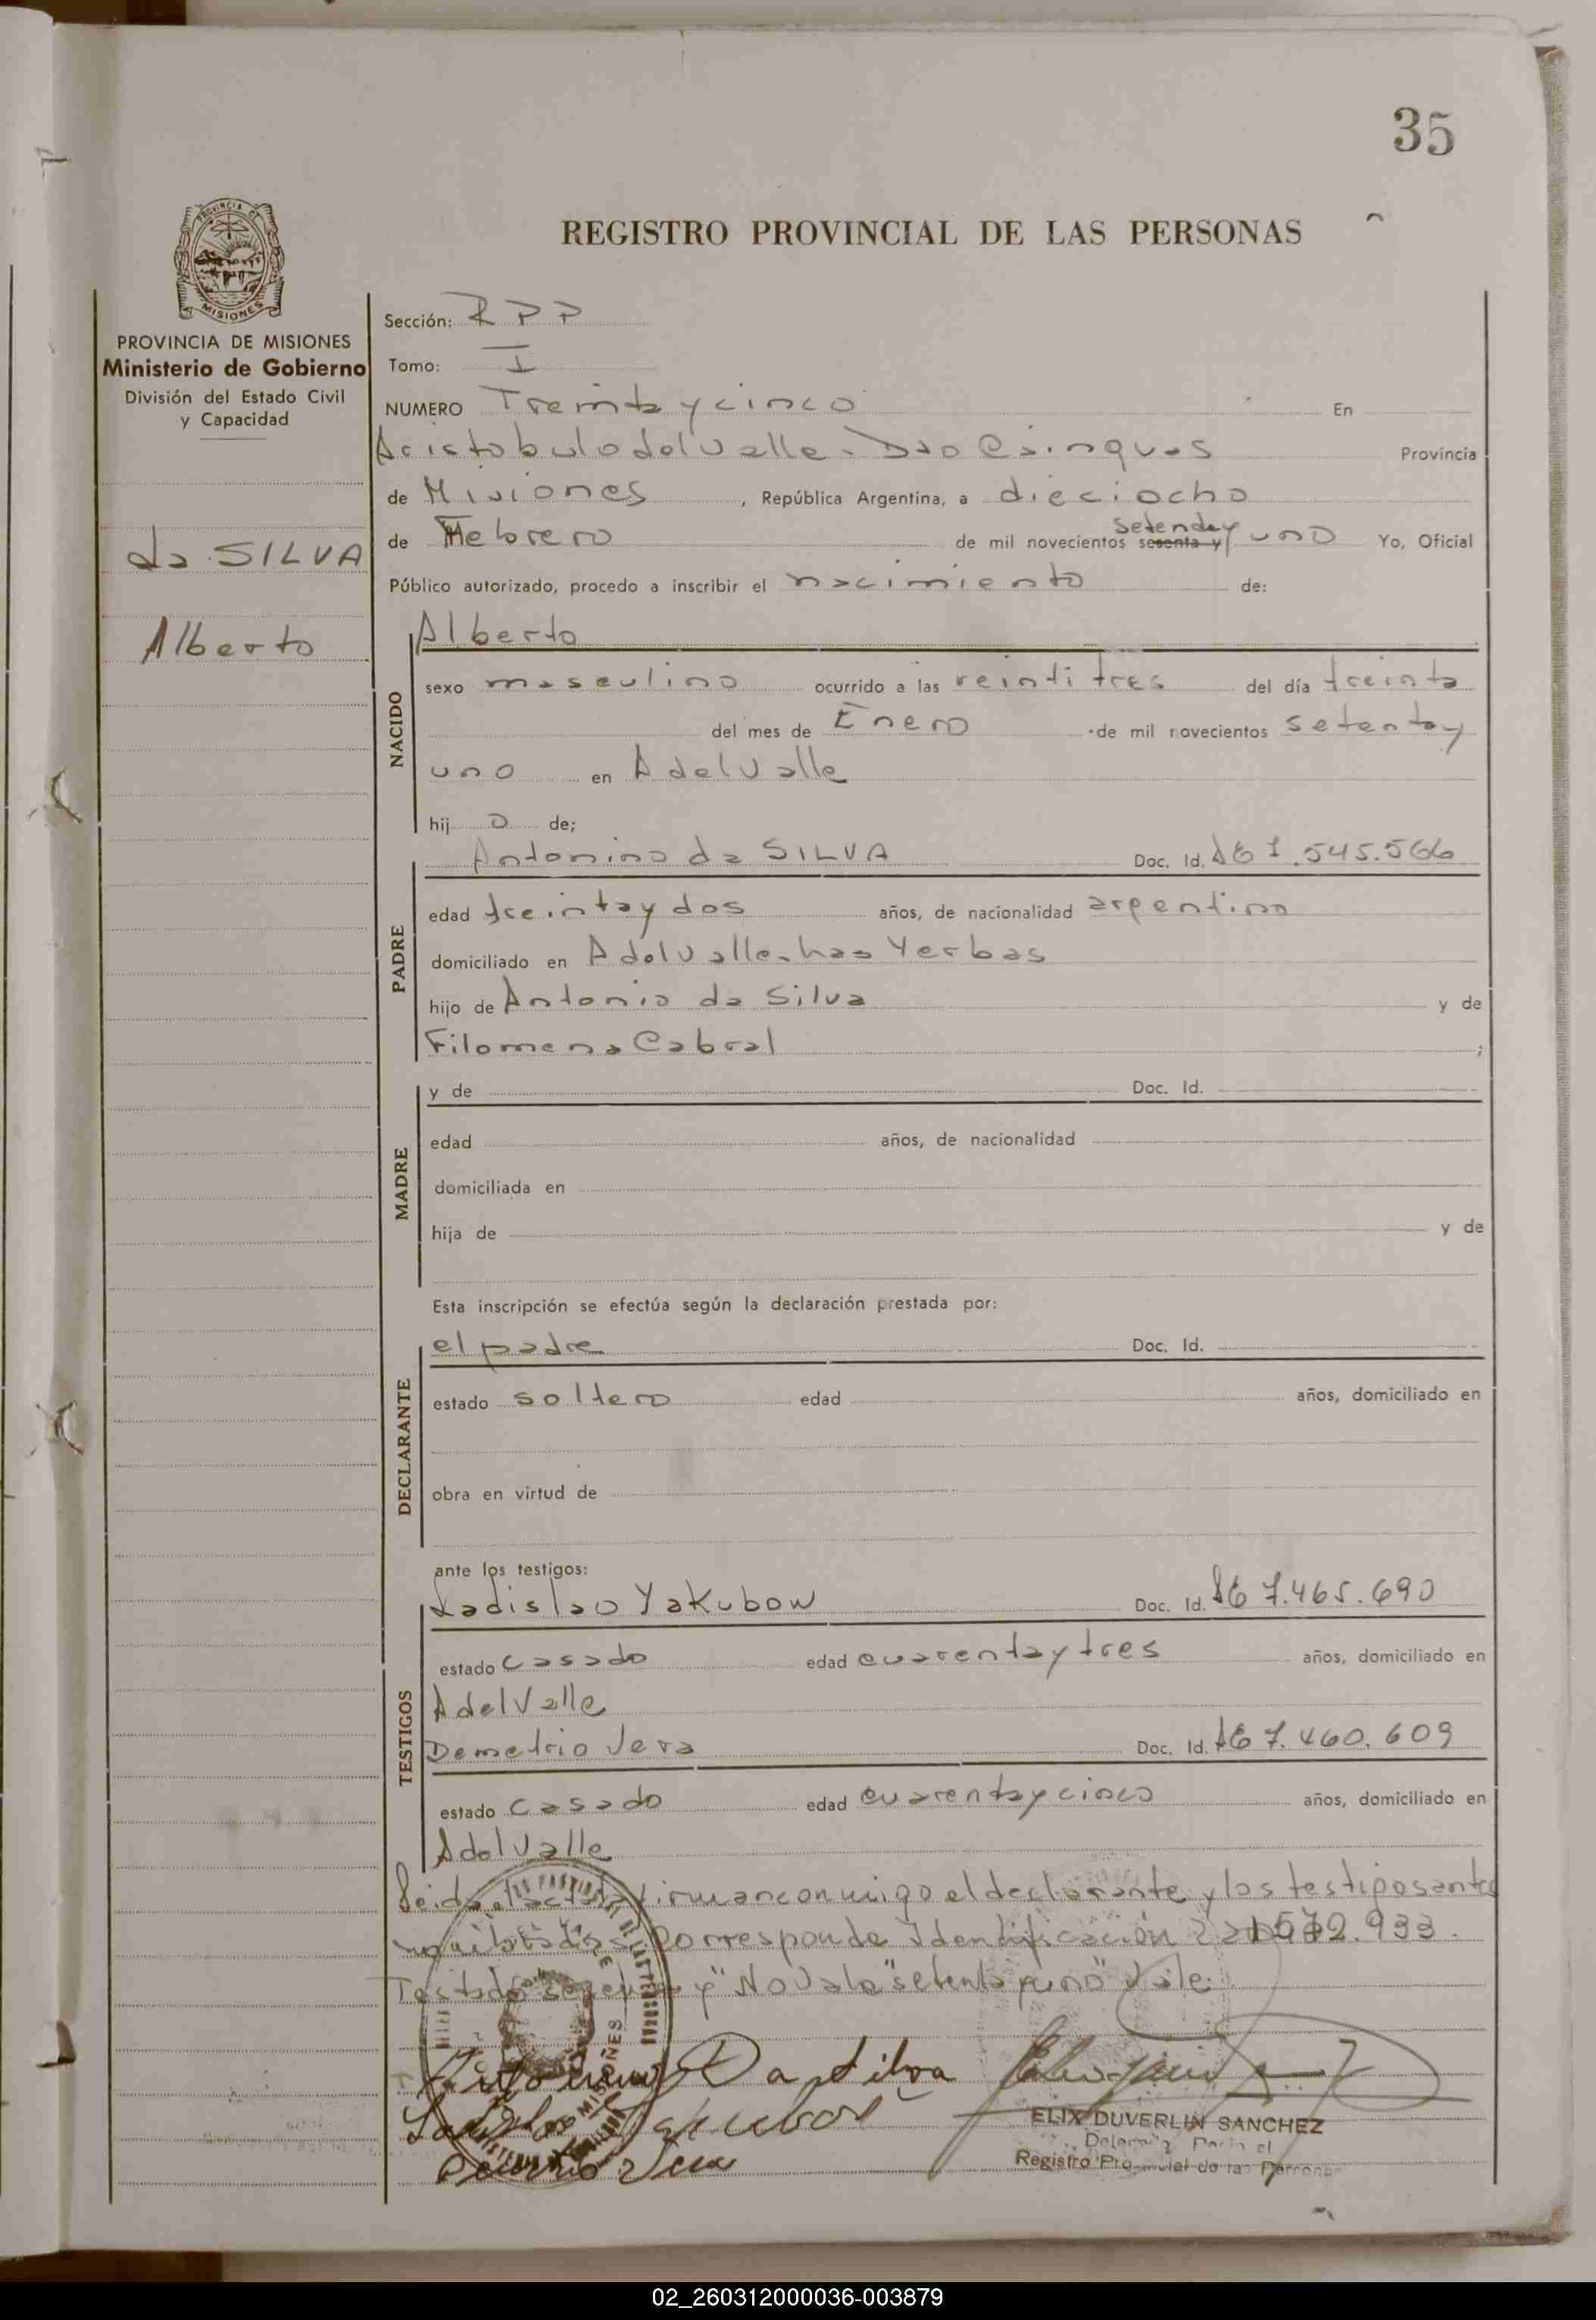 35
REGISTRO PROVINCIAL DE LAS PERSONAS
PROVINCIA DE MISIONES
Ministerio de Gobierno
División del Estado Civil
y Capacidad
da SILVA
Alberto
Sección: RPP
Tomo: I
NUMERO Treinta y cinco En
Aristobulo del Valle - Dpto Cainguas Provincia
de Misiones, República Argentina, a dieciocho
de Febrero de mil novecientos sesenta y setenta y uno Yo, Oficial
Público autorizado, procedo a inscribir el nacimiento de:
Alberto
NACIDO
sexo masculino ocurrido a las veintitres del día treinta
del mes de Enero de mil novecientos setenta y
uno en A del Valle
hijo de;
PADRE
Antonino da SILVA Doc. Id. 7.545.566
edad treinta y dos años, de nacionalidad argentino
domiciliado en A del Valle - Yerbas
hijo de Antonio da Silva y de
Filomena Cabral ;
MADRE
y de Doc. Id.
edad años, de nacionalidad
domiciliada en
hija de y de
Esta inscripción se efectúa según la declaración prestada por:
DECLARANTE
el padre Doc. Id.
estado soltero edad años, domiciliado en
obra en virtud de
ante los testigos:
TESTIGOS
Ladislao Yakubow Doc. Id. 7.465.690
estado casado edad cuarenta y tres años, domiciliado en
A del Valle
Demetrio Vera Doc. Id. 7.460.609
estado casado edad cuarenta y cinco años, domiciliado en
A del Valle
Leida el acta firman conmigo el declarante y los testigos antes
Corresponde Identificación 933.
Testado sesenta y "No Vale" "setenta y uno" Vale.
Antonino Da Silva
ELIX DUVERLIN SANCHEZ
Registro Provincial de las Personas
02_260312000036-003879